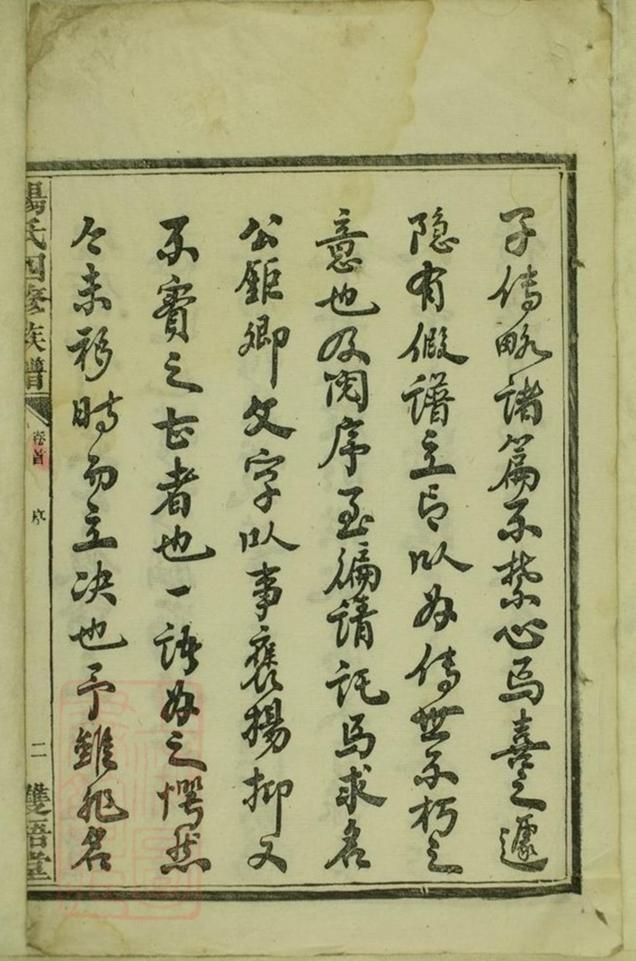 子傳略諸篇不禁心焉喜之遽
隐有假譜立言以为傳世不朽之
意也及閱序至徧請託焉求名
公鉅卿文字以事褒揚抑又
不實之甚者也一語为之愕然
今未移時而立决也予雖非名
楊氏四修族譜
卷首
序
二
雙語堂